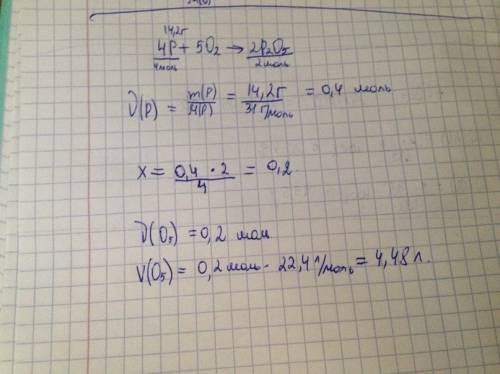 14,2г
4P + 5O₂ → 2P₂O₅
4моль 2моль
ν(P) = m(P)/M(P) = 14,2г/31 г/моль = 0,4 моль
x = 0,4 · 2/4 = 0,2
ν(O₅) = 0,2 мол
V(O₅) = 0,2 мол · 22,4 л/моль = 4,48 л.